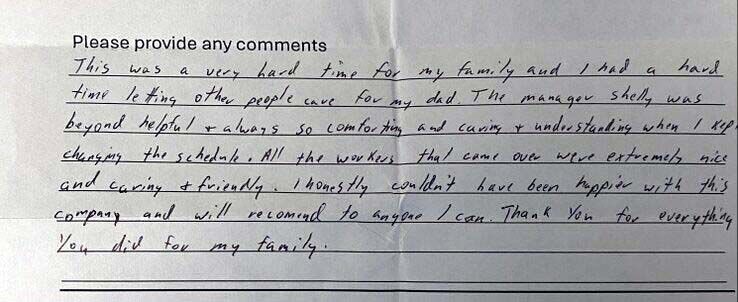 Please provide any comments
This was a very hard time for my family and I had a hard
time letting other people care for my dad. The manager Shelly was
beyond helpful + always so comforting and caring + understanding when I kep
changing the schedule. All the workers that came over were extremely nice
and caring & friendly. I honestly couldn't have been happier with this
company and will recomend to anyone I can. Thank You for everything
You did for my family.